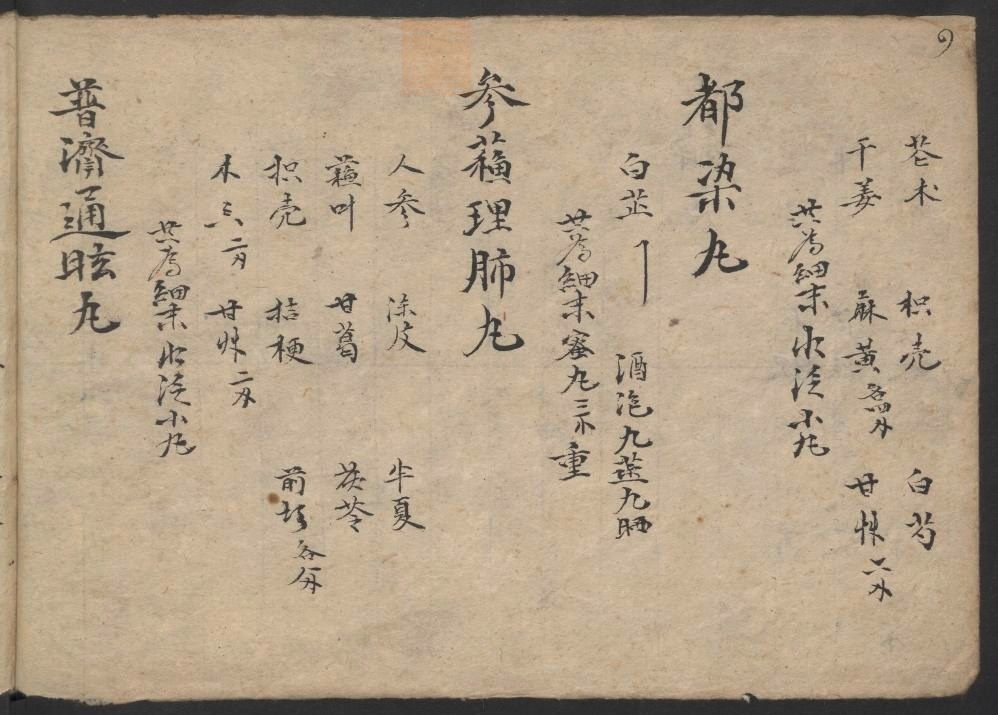 苍术 枳壳 白芍
干姜 麻黄 各四分 甘草 二分
共為細末水泛小丸
都染丸
白芷 酒泡九蒸九晒
共為細末蜜丸三分重
参蘓理肺丸
人参 陈皮 半夏
蘓叶 甘葛 茯苓
枳壳 桔梗 前胡
木 二分 甘草 二分
共為細末水泛小丸
普濟通眩丸